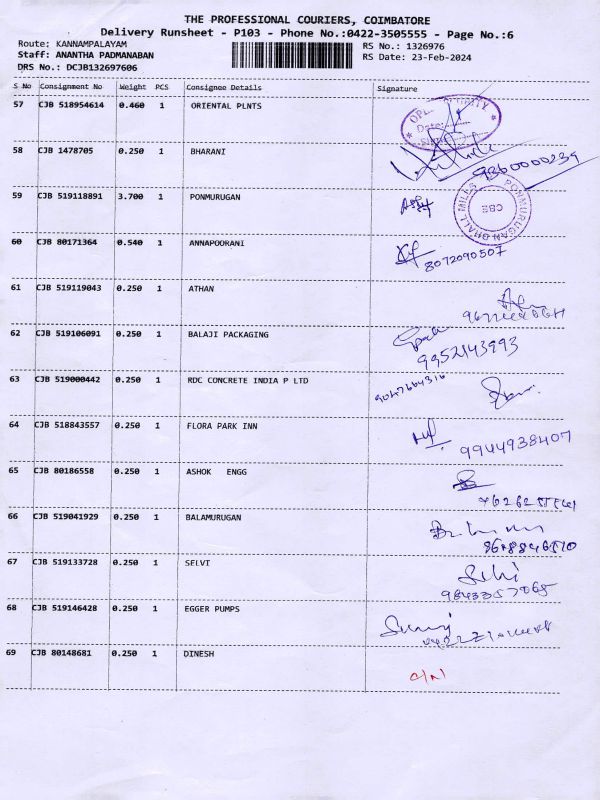 THE PROFESSIONAL COURIERS, COIMBATORE
Delivery Runsheet - P103 - Phone No.:0422-3505555 - Page No.:6
Route: KANNAMPALAYAM RS No.: 1326976
Staff: ANANTHA PADMANABAN RS Date: 23-Feb-2024
DRS No.: DCJB132697606
S No Consignment No Weight PCS Consignee Details Signature
57 CJB 518954614 0.460 1 ORIENTAL PLNTS
Date:
58 CJB 1478705 0.250 1 BHARANI
59 CJB 519118891 3.700 1 PONMURUGAN
PONMURUGAN DHALL MILLS CBE
60 CJB 80171364 0.540 1 ANNAPOORANI
8072090507
61 CJB 519119043 0.250 1 ATHAN
62 CJB 519106091 0.250 1 BALAJI PACKAGING
9952143993
63 CJB 519000442 0.250 1 RDC CONCRETE INDIA P LTD
64 CJB 518843557 0.250 1 FLORA PARK INN
9944938407
65 CJB 80186558 0.250 1 ASHOK ENGG
66 CJB 519041929 0.250 1 BALAMURUGAN
67 CJB 519133728 0.250 1 SELVI
Selvi
68 CJB 519146428 0.250 1 EGGER PUMPS
69 CJB 80148681 0.250 1 DINESH